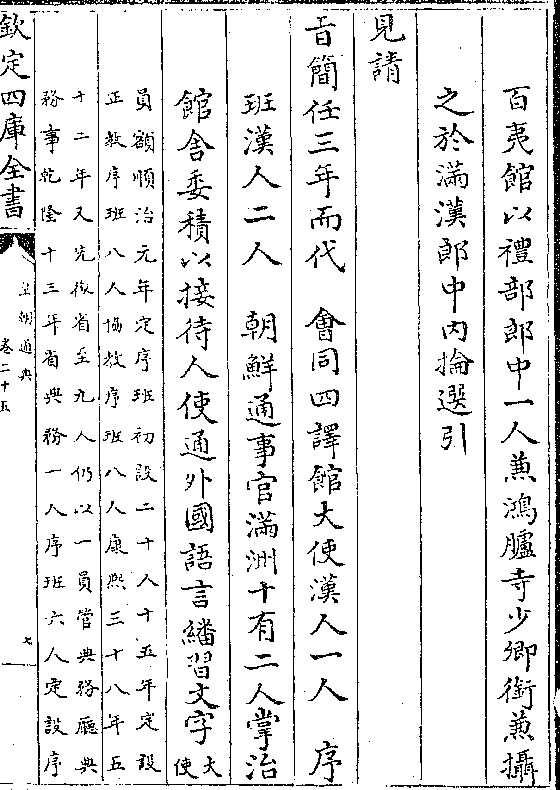 百夷館以禮部郎中一人兼鴻臚寺少卿銜兼攝
之於滿漢郎中內掄選引
見請
旨簡任三年而代　會同四譯館大使漢人一人　序
班漢人二人　朝鮮通事官滿洲十有二人掌治
館舍委積以接待人使通外國語言繙習文字大使
員額順治元年定序班初設二十人十五年定設
正教序班八人協教序班八人康熙三十八年五
十二年又先後省至九人仍以一員管典務廳典
務事乾隆十三年省典務一人序班六人定設序
欽定四庫全書
皇朝通典
卷二十五
七